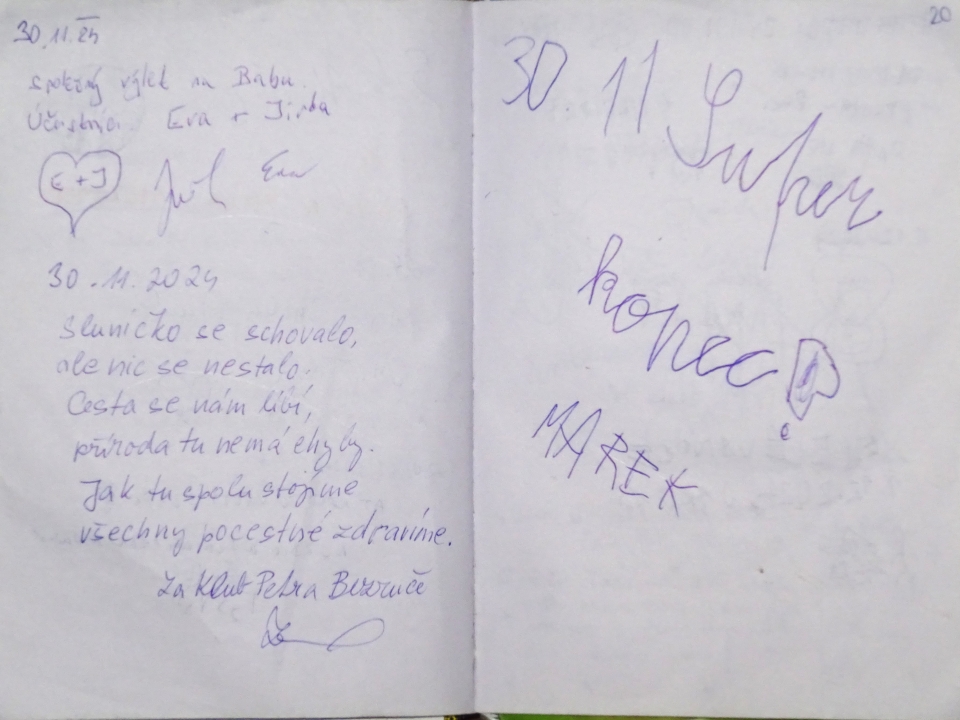 30.11.24
výlet na Babu.
Eva + Jirka
E + J
Eva
30.11.2024
Sluníčko se schovalo,
ale nic se nestalo.
Cesta se nám líbí,
příroda tu nemá chyby.
Jak tu spolu stojíme
všechny pocestné zdravíme.
Za Klub Petra Bezruče
20
30 11 Super
kopec!
MAREK